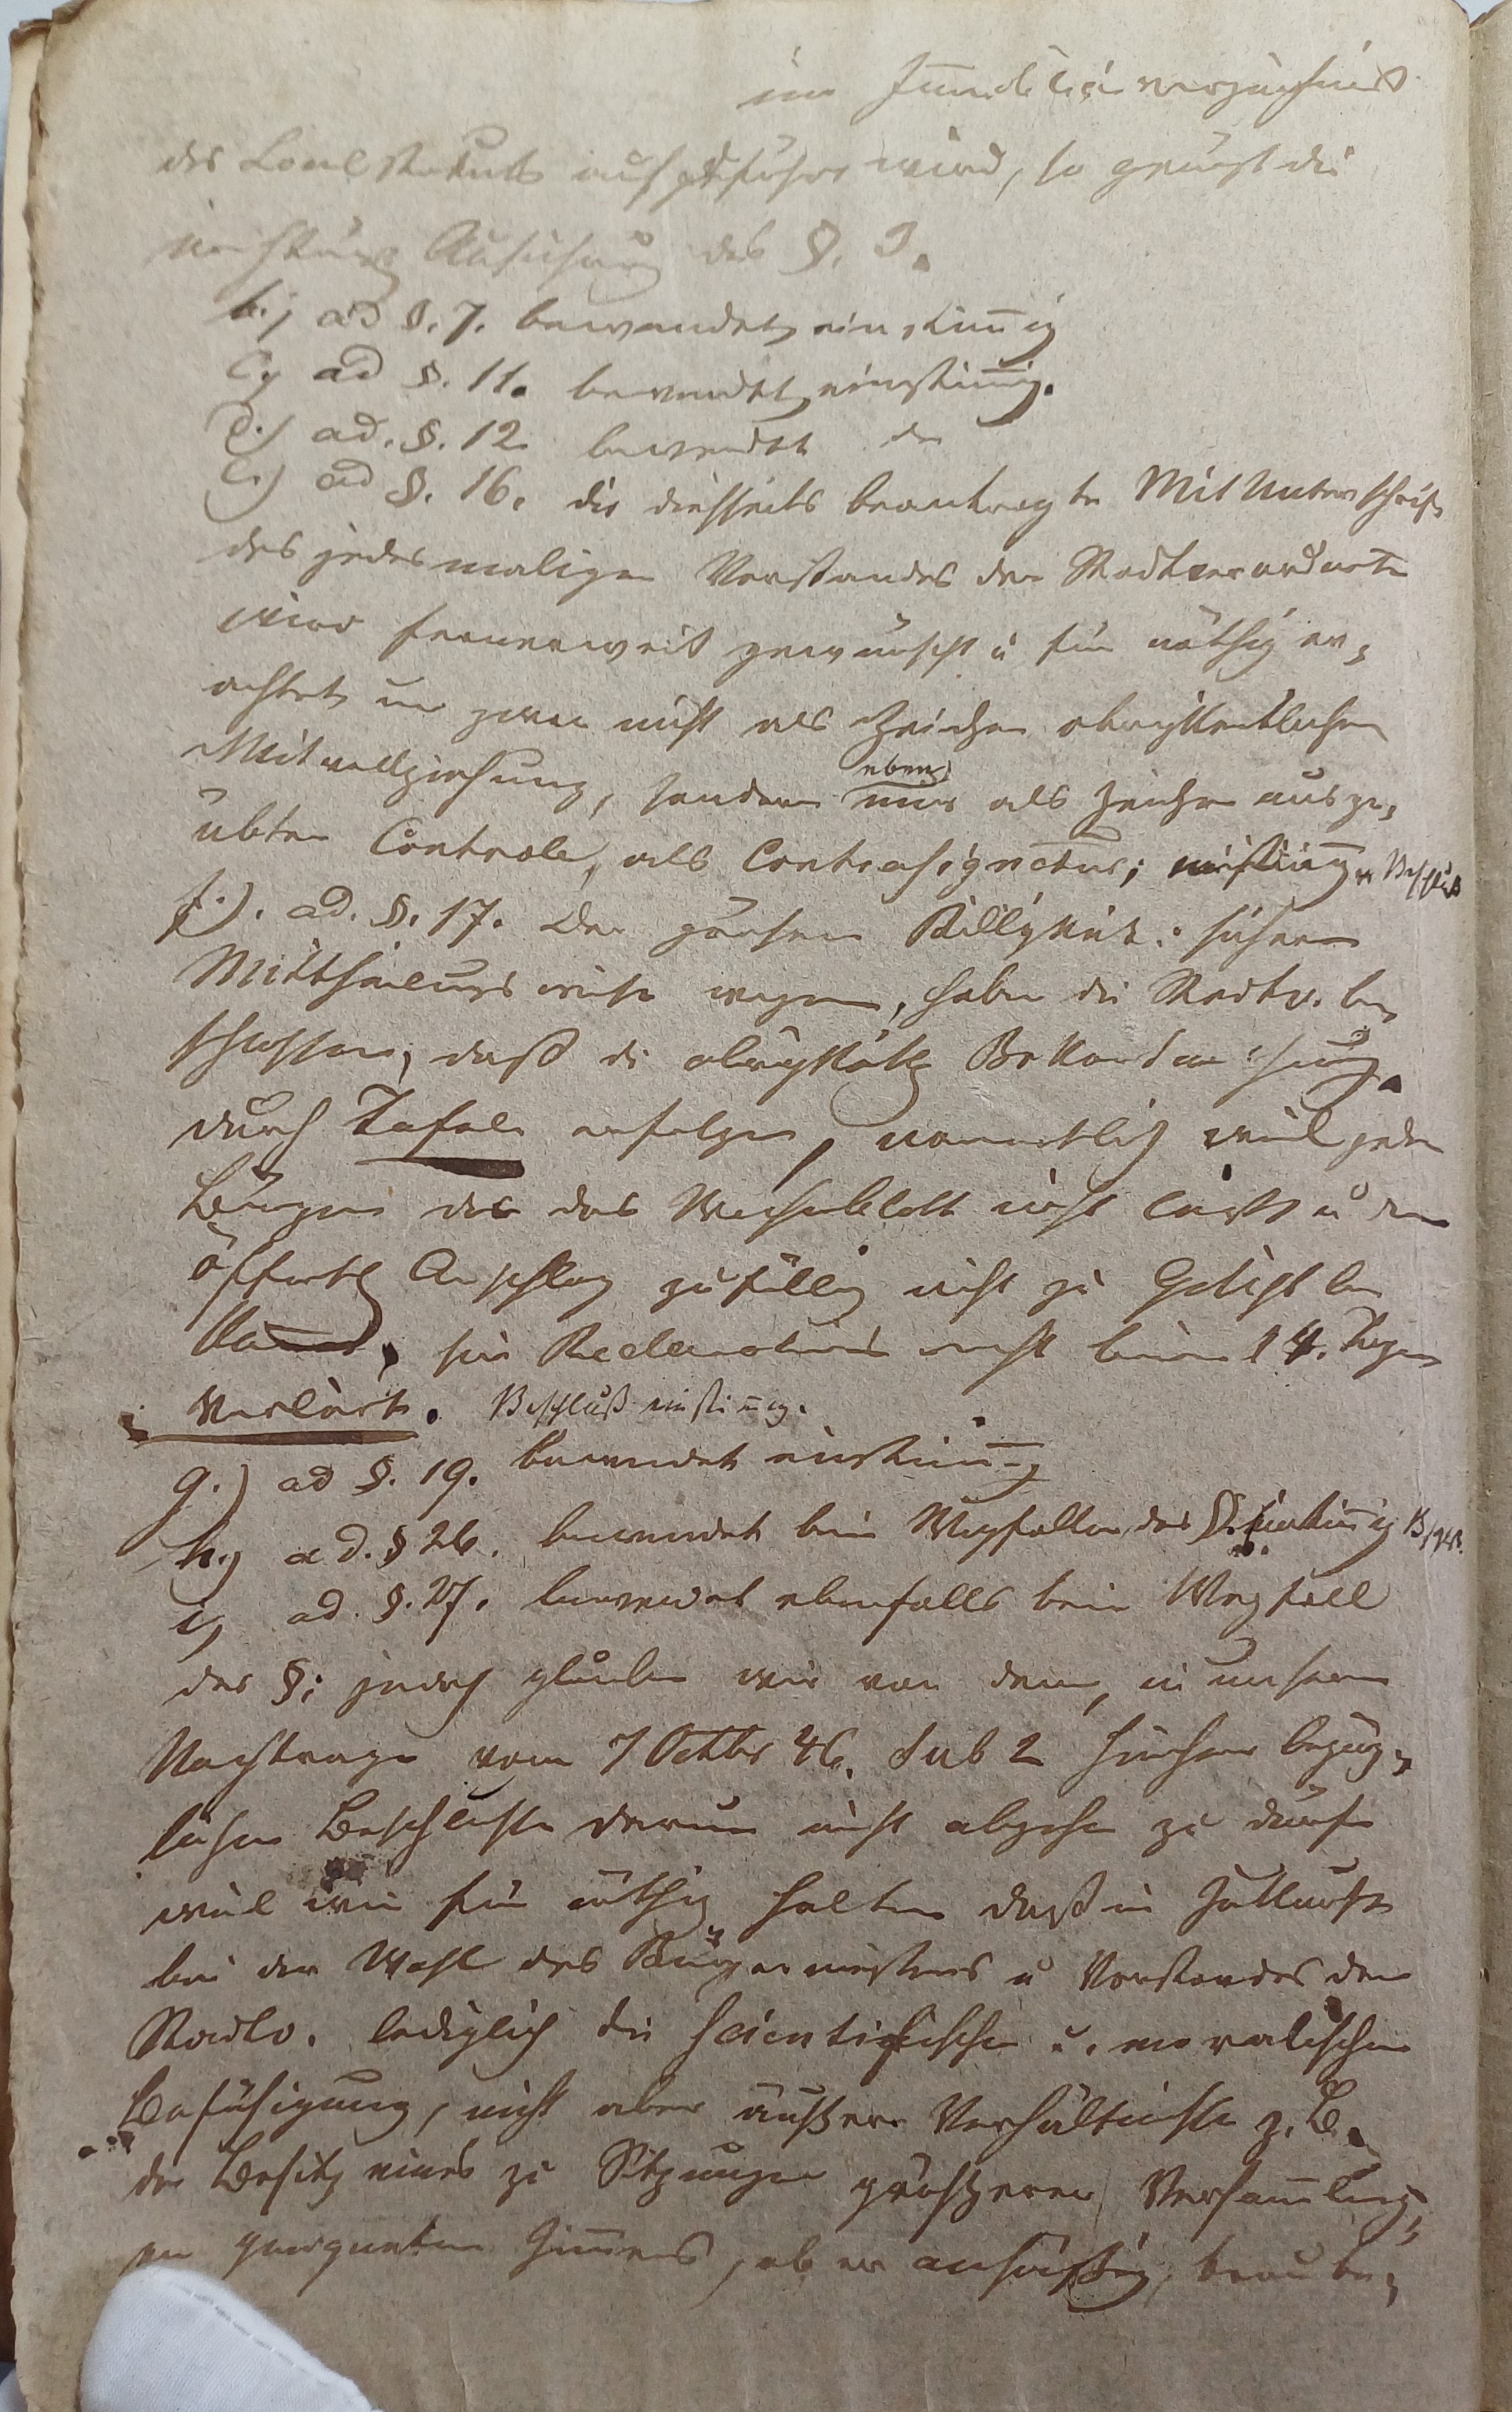 im Immobiliarverzeichniß
des Localstatuts aufgeführt wird, so genügt die
Ansehung des §. 3.
b.) ad §. 7. bewendet, einstimig
c.) ad §. 11. bewendet, einstimig.
d.) ad. §. 12 bewendet do
e.) ad §. 16. die diesseits beantragte MitUnterschrift
des jedesmaligen Vorstandes der Stadtverordnete
wird fernerweit gewünscht u für nöthig er-
achtet un zwar nicht als Zeichen obrigkeitlicher
Mitvollziehung, sondern eben nur als Zeichen ausge-
übter Controle, als Contrasignatur; einstimig. Beschluß
f.). ad. §. 17. Der großen Billigkeit u. sichern
Mittheilungsweise wegen, haben die Stadtv. be-
schlossen, daß die obrigkeitl Bekantmachung
durch Tafeln erfolgen, namentlich weil jeder
Bürger der das Wochenblatt nicht ließt u den
öffentl Anschlag zufällig nicht zu Gesicht be
komt, sein Reclamations recht binen 14. Tagen
verliert. Beschluß einstimig.
g.) ad §. 19. bewendet einstimig
h.) ad. § 26. bewendet beim Wegfallen des §. einstimig
i.) ad. §. 27. bewendet ebenfalls beim Wegfall
des §; jedoch glauben wir von dem, in unserm
Nachtrage vom 7 Octbr 46. sub 2 hierher bezüg-
lichen Beschlusse darum nicht abgehen zu dürfen
weil wir für nöthig halten daß in Zukunft
bei der Wahl des Bürgermeisters u Vorstandes der
Stadtv. lediglich die scientifische u. moralische
Befähigung, nicht aber äußere Verhältnisse z. B.
der Besitz eines zu Sitzungen größerer Versamlung-
en geeigneten Zimers, ob er ansäßig, braube-